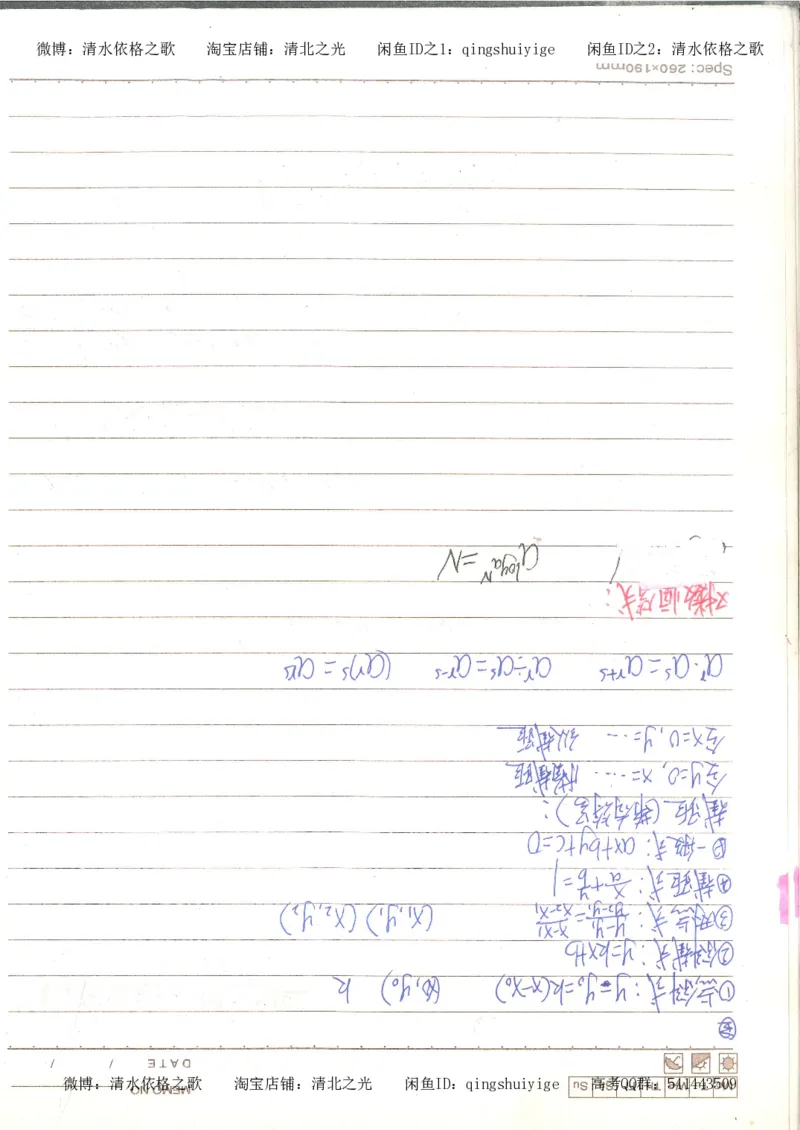 微博：清水依格之歌 淘宝店铺：清北之光 闲鱼ID之1：qingshuiyige 闲鱼ID之2：清水依格之歌
MEMO NO.
DATE / /
①点斜式：y-y₀=k(x-x₀) (x₀,y₀) k
②斜截式：y=kx+b
③两点式：\frac{y-y₁}{y₂-y₁}=\frac{x-x₁}{x₂-x₁} (x₁,y₁) (x₂,y₂)
④截距式：\frac{x}{a}+\frac{y}{b}=1
⑤一般式：ax+by+c=0
截距（带有符号）：
令y=0,x=…… 横截距
令x=0,y=…… 纵截距
aʳ·aˢ=aʳ⁺ˢ aʳ÷aˢ=aʳ⁻ˢ (aʳ)ˢ=aʳˢ
对数恒等式：
a^{log_a N}=N
Spec: 260×190mm
微博：清水依格之歌 淘宝店铺：清北之光 闲鱼ID：qingshuiyige 高考QQ群：541443509